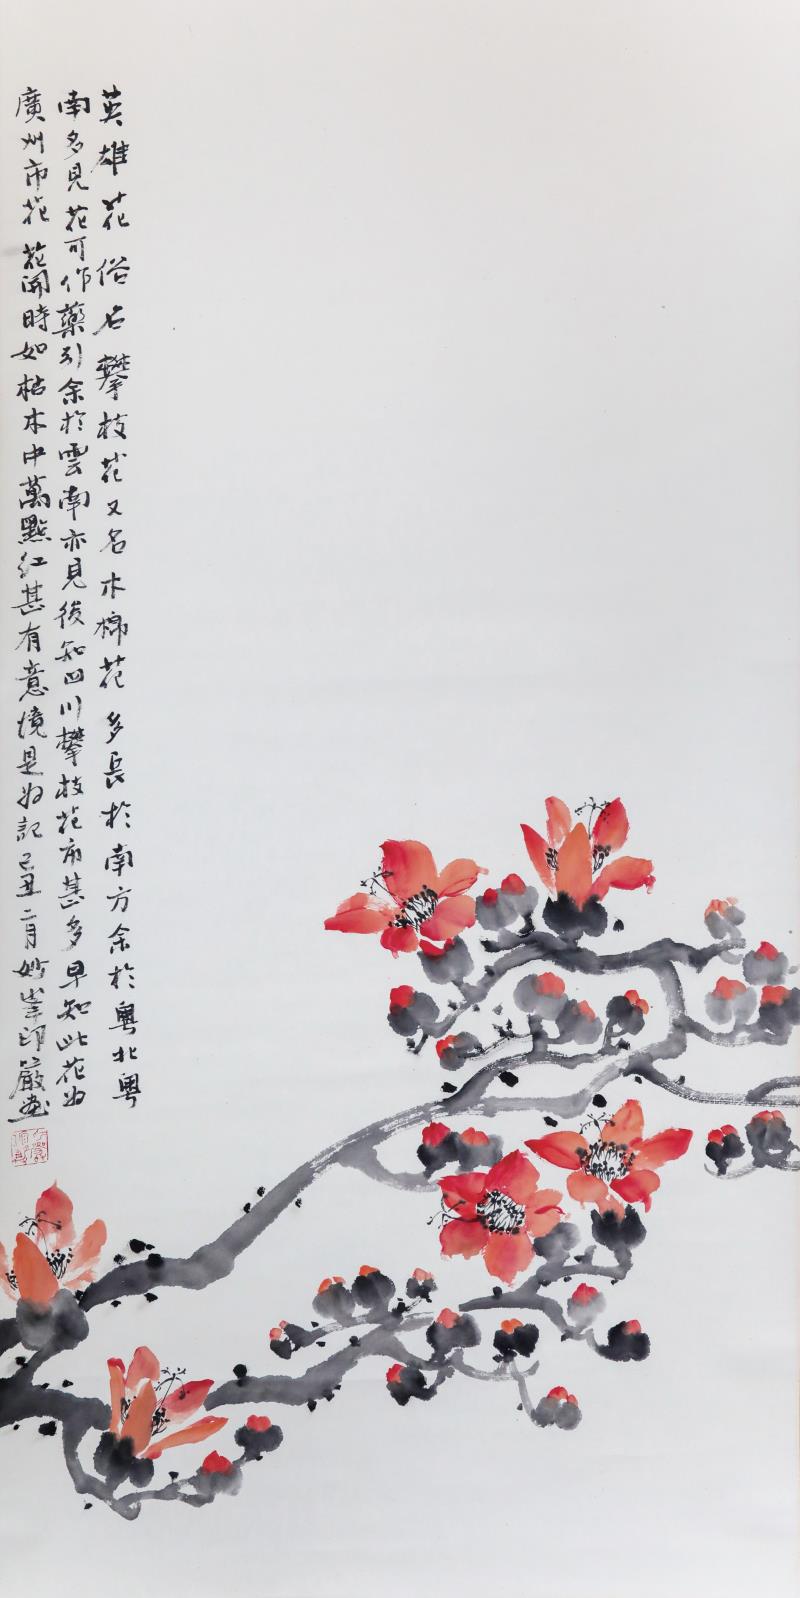 英雄花俗名攀枝花又名木棉花多長於南方余於粵北粵
南多見花可作藥引余於雲南亦見後知四川攀枝花市甚多早知此花為
廣州市花花開時如枯木中萬點紅甚有意境是為記己丑二月妙峯印嚴畫